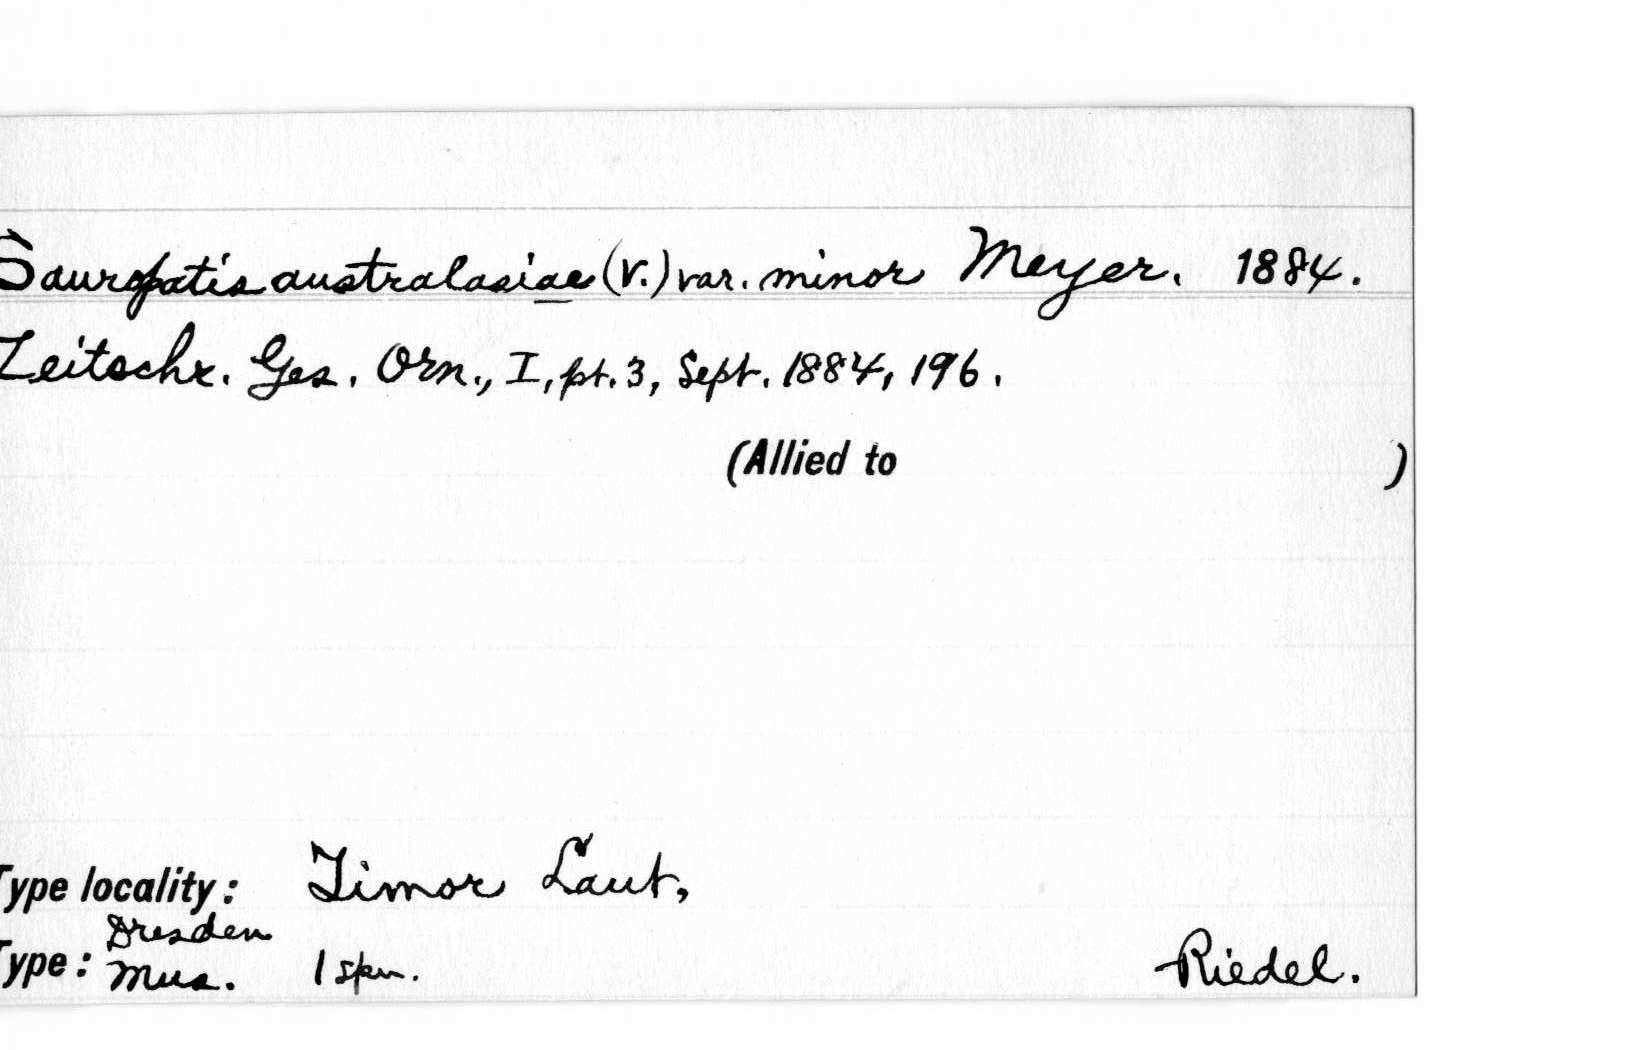 Sauropatis australasiae (V.) var. minor Meyer. 1884.
Zeitschr. Ges. Orn., I, pt. 3, Sept. 1884, 196.
(Allied to )
Type locality: Timor Laut,
Type: Dresden Mus. 1 spm. Riedel.